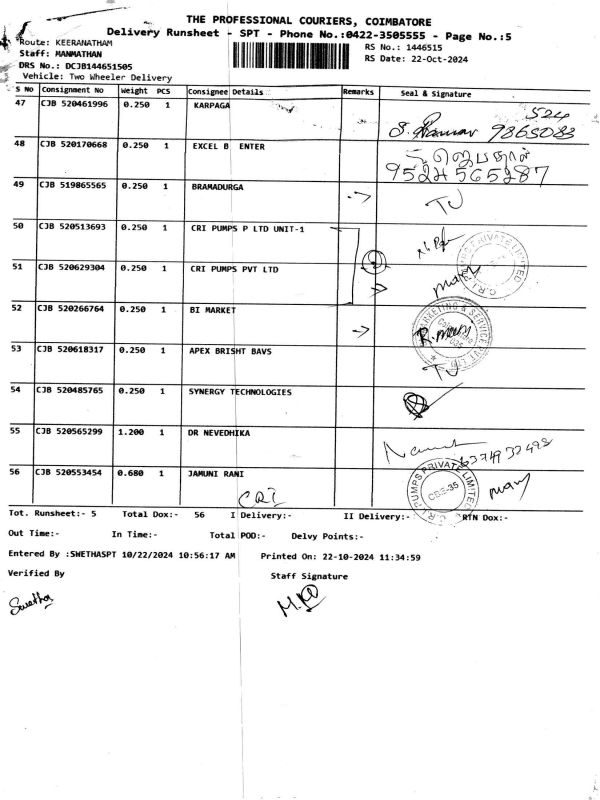 THE PROFESSIONAL COURIERS, COIMBATORE
Delivery Runsheet - SPT - Phone No.:0422-3505555 - Page No.:5
Route: KEERANATHAM
RS No.: 1446515
Staff: MANMATHAN
RS Date: 22-Oct-2024
DRS No.: DCJB144651505
Vehicle: Two Wheeler Delivery
S No Consignment No Weight PCS Consignee Details Remarks Seal & Signature
47 CJB 520461996 0.250 1 KARPAGA
524
9865083
48 CJB 520170668 0.250 1 EXCEL B ENTER
9524565287
49 CJB 519865565 0.250 1 BRAMADURGA
TJ
50 CJB 520513693 0.250 1 CRI PUMPS P LTD UNIT-1
51 CJB 520629304 0.250 1 CRI PUMPS PVT LTD
many
52 CJB 520266764 0.250 1 BI MARKET
53 CJB 520618317 0.250 1 APEX BRISHT BAVS
TJ
54 CJB 520485765 0.250 1 SYNERGY TECHNOLOGIES
55 CJB 520565299 1.200 1 DR NEVEDHIKA
56 CJB 520553454 0.680 1 JAMUNI RANI
C.R.I. PUMPS PRIVATE LIMITED
CBE-35
many
CRI
Tot. Runsheet:- 5 Total Dox:- 56 I Delivery:- II Delivery:- RTN Dox:-
Out Time:- In Time:- Total POD:- Delvy Points:-
Entered By :SWETHASPT 10/22/2024 10:56:17 AM Printed On: 22-10-2024 11:34:59
Verified By Staff Signature
Swetha